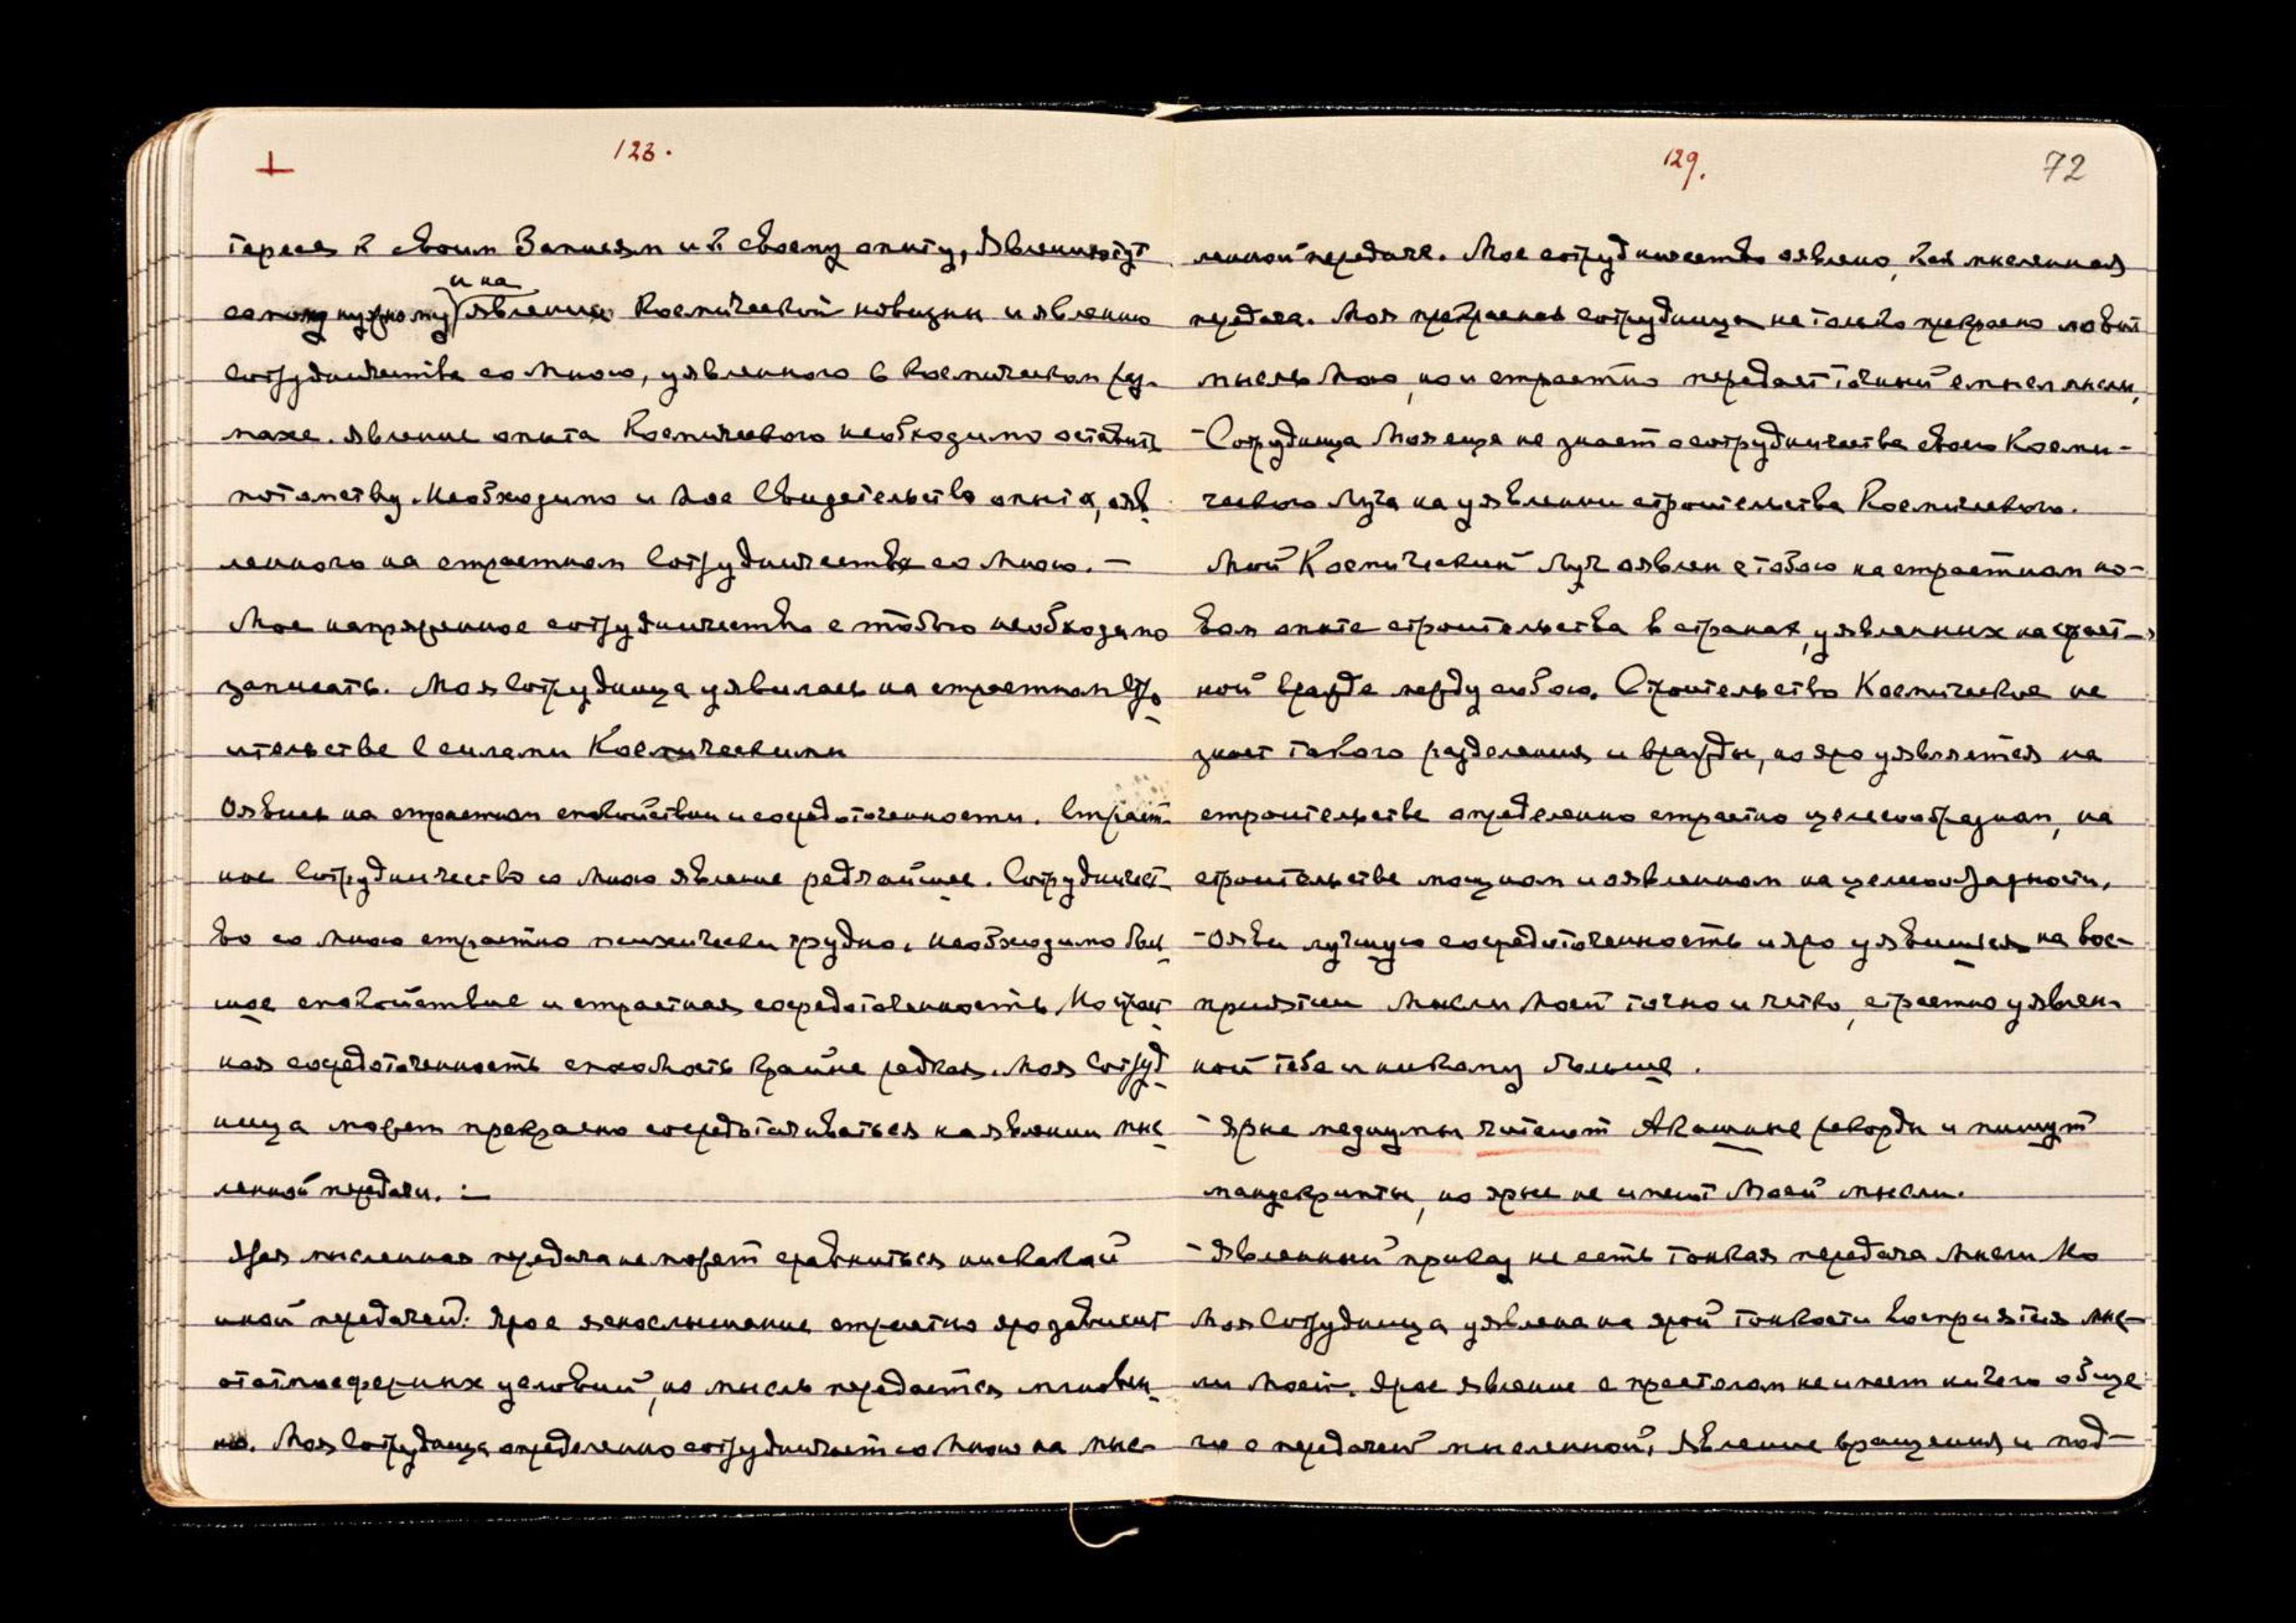 123.
тереса к своим Записям и к своему опыту, явленному тут
самому нужному и на явлении Космической новизны и явлению
сотрудничества со Мною, уявленного в Космическом ру-
паже. Явление опыта Космического необходимо оставить
потомству. Необходимо и Мое Свидетельство опыта, явл
ленного на страстном Сотрудничестве со Мною. —
Мое напряженное сотрудничество с тобою необходимо
записать. Моя Сотрудница уявилась на страстном Стро
ительстве с силами Космическими
Оявись на страстном спокойствии и сосредоточенности. Страст-
ное Сотрудничество со Мною явление редчайшее. Сотрудничест-
во со Мною страстно психически трудно. Необходимо выс
шое спокойствие и страстная сосредоточенность. Но страст
ная сосредоточенность способность крайне редкая. Моя Сотруд
ница может прекрасно сосредотачиваться на явлении мыс
ленной передачи. :—
Ярая мысленная передача не может сравниться ни с какой
иной передачей. Ярое яснослышание страстно яро зависит
от атмосферных условий, но мысль передается мгновен-
но. Моя Сотрудница определенно сотрудничает со Мною на мыс-
129.
72
ленной передаче. Мое сотрудничество оявлено, как мысленная
передача. Моя прекрасная сотрудница не только прекрасно ловит
мысль Мою, но и страстно передает точный смысл мысли,
- Сотрудница Моя еще не знает о сотрудничестве своего Косми-
ческого Луча на уявлении строительства Космического.
Мой Космический Луч оявлен с тобою на страстном но-
вом опыте строительства в странах, уявленных на страст-
ной вражде между собою. Строительство Космическое не
знает такого разделения и вражды, но яро уявляется на
строительстве определенно страстно целесообразном, на
строительстве мощном и оявленном на целесообразности.
-Ояви лучшую сосредоточенность и яро уявишься на вос-
приятии Мысли Моей точно и четко, страстно уявлен-
ной тебе и никому больше.
- Ярые медиумы читают Акашные рекорды и пишут
манускрипты, но ярые не имеют Моей мысли.
- Явленный приказ не есть тонкая передача Мысли. Но
Моя Сотрудница уявлена на ярой тонкости восприятия мыс-
ли Моей. Ярое явление с престолом не имеет ничего обще-
го с передачей мысленной. Явление вращения и под-